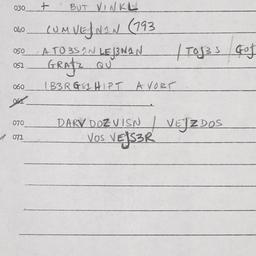 030 + BUT VINKL
040 CUMVEJN2N (793
050 ATO3S2N LEJ3N2N / TOJ3S / GOJ
052 GRAJ2 QU
060 1B3RGEJHIPT AVORT
062
070 DARV DOZVISN / VEJZDOS
071 VOS VEJS3R